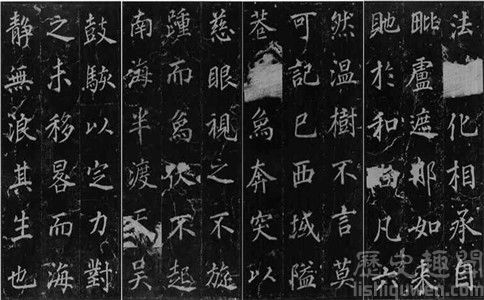 法化相承自
毗盧遮那如来
貤於和凡六
然温樹不言莫
可記已西域隘
巷象奔突以
慈眼視之不旋
踵而象伏不起
南海半渡天吴
鼓駭以定力對
之未移晷而海
静無浪其生也
歷史趣聞
lishiquwen.com